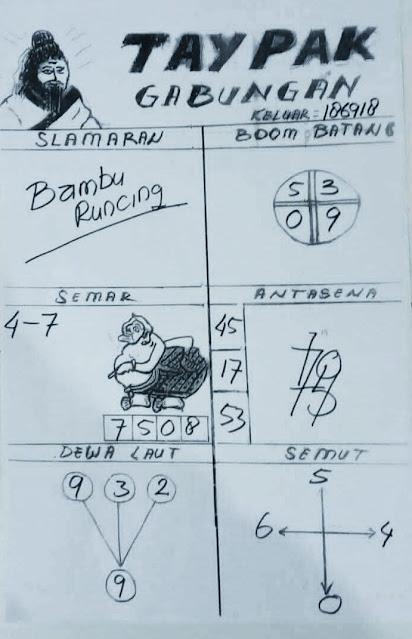 TAYPAK
GABUNGAN
KELUAR = 186918
SLAMARAN
BOOM BATANG
Bambu
Runcing
5 3
0 9
SEMAR
ANTASENA
4-7
45
17
53
7 5 0 8
DEWA LAUT
SEMUT
9 3 2
9
5
6 4
0